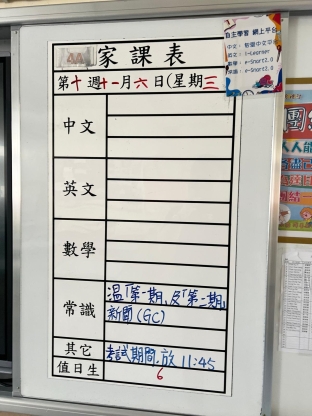 4A 家課表
第十週十一月六日(星期三
中文
英文
數學
常識
溫「第一期」及「第二期」
新聞(GC)
其它
考試期間,放 11:45
值日生
6
自主學習 網上平台
i-Learner
e-Smart2.0
e-Smart2.0